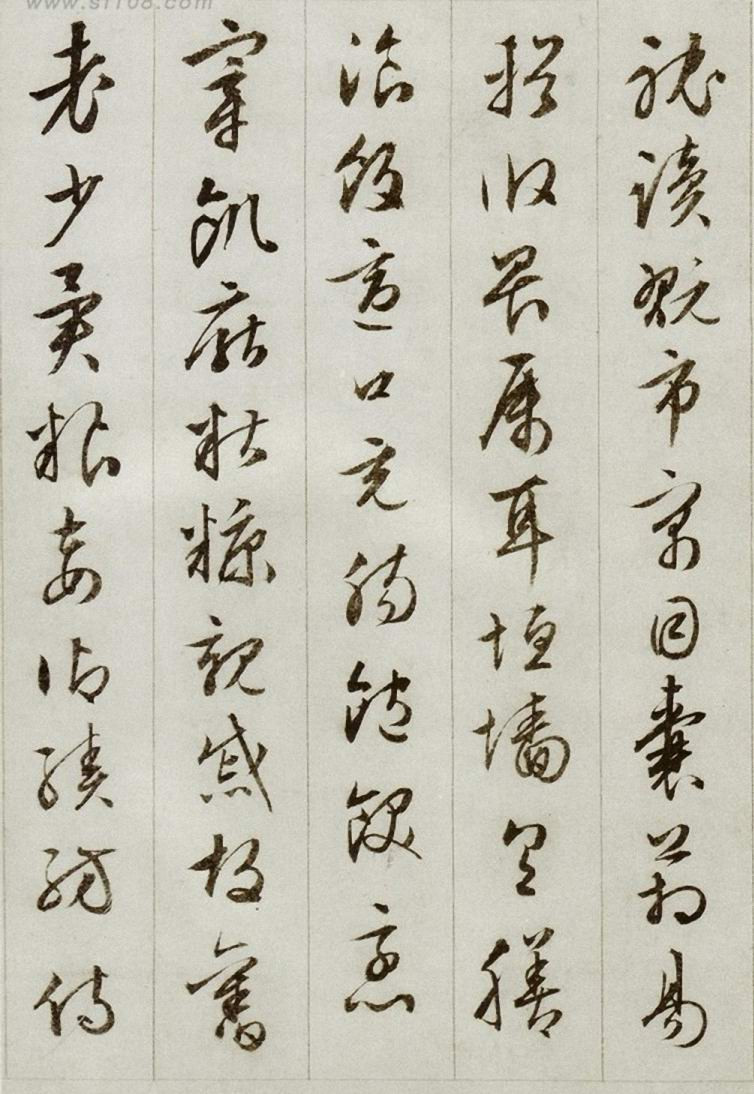 www.sf108.com
耽讀翫市寓目囊箱易
輶攸畏屬耳垣墻具膳
飡飯適口充腸飽飫烹
宰飢厭糟糠親戚故舊
老少異糧妾御績紡侍